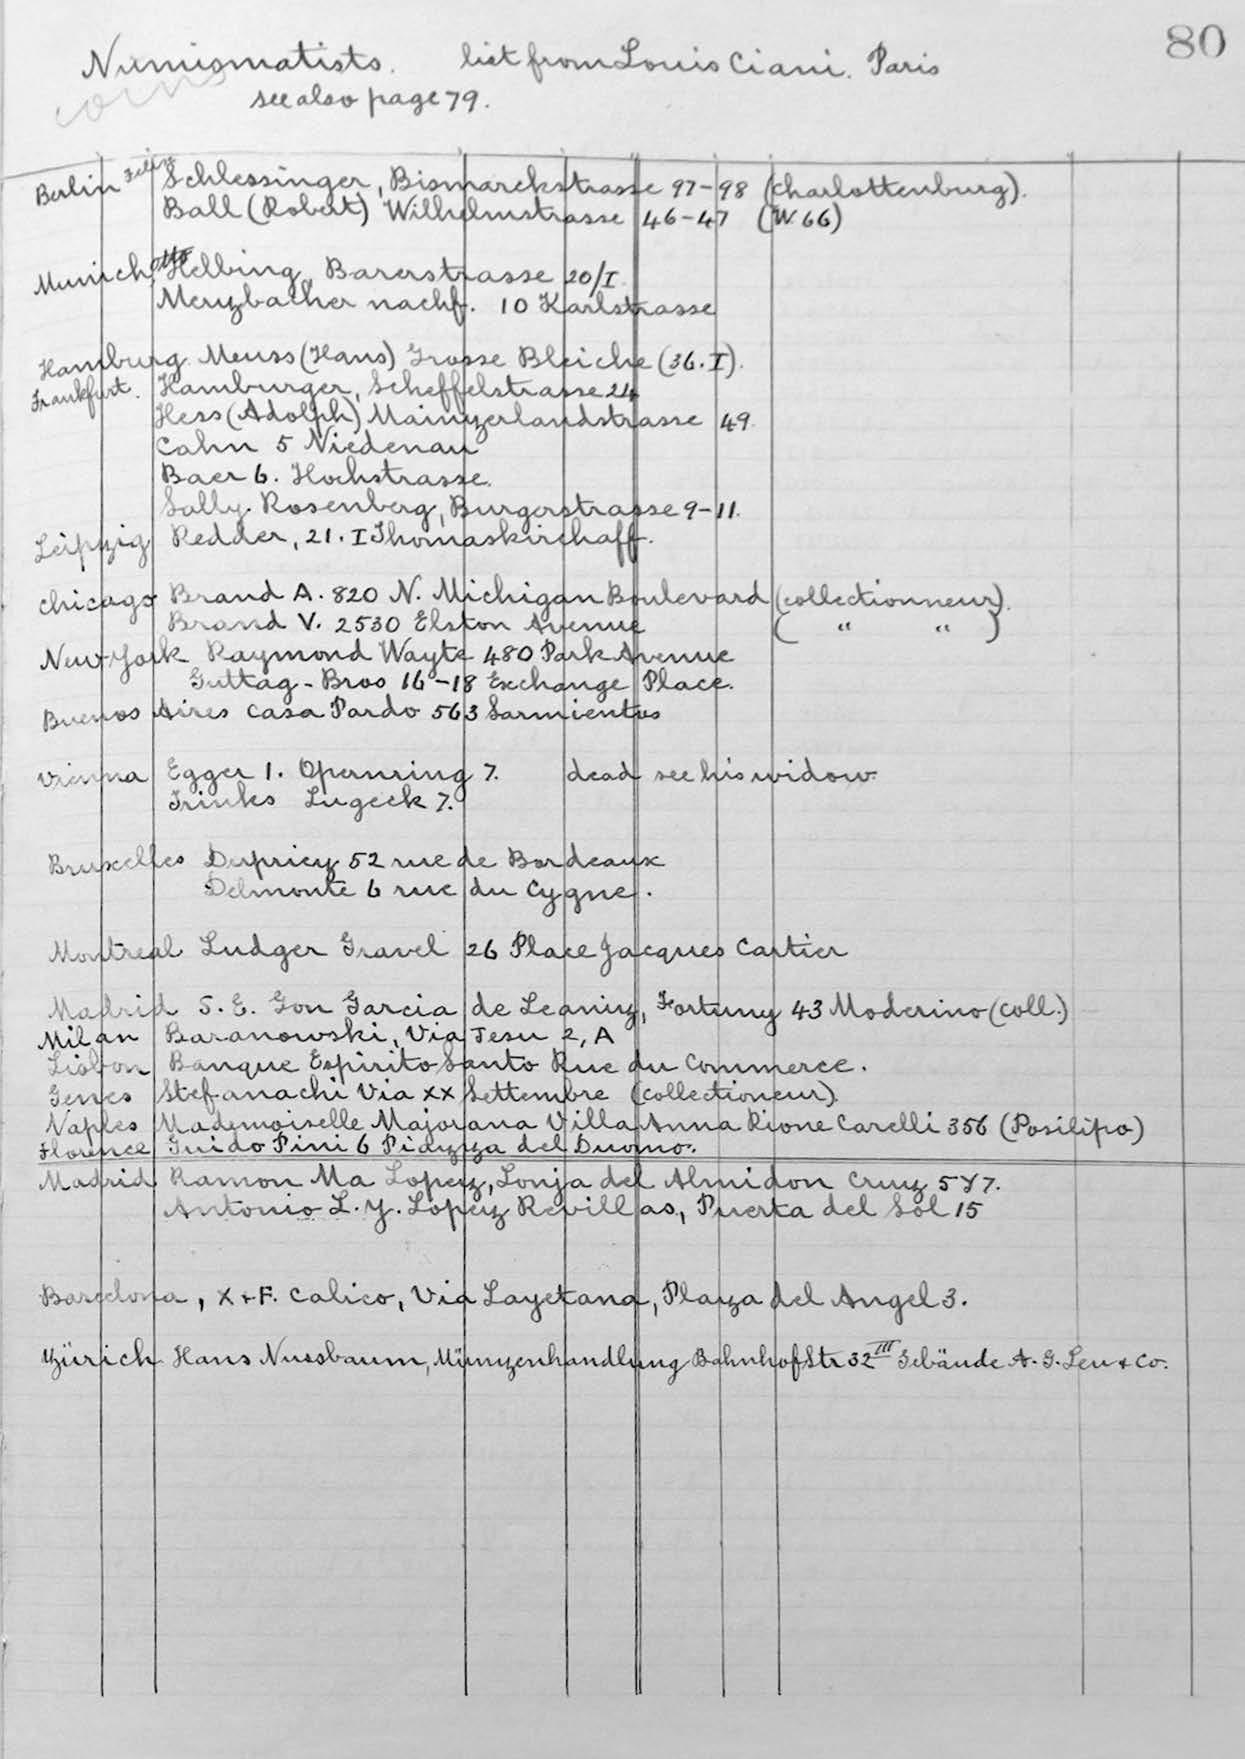 80
Numismatists. list from Louis Ciani. Paris
coins
see also page 79.
Berlin Felix Schlessinger, Bismarckstrasse 97-98 (Charlottenburg).
Ball (Robert) Wilhelmstrasse 46-47 (W. 66)
Munich Otto Helbing, Barerstrasse 20/I.
Merzbacher nachf. 10 Karlstrasse
Hamburg Meuss (Hans) Grosse Bleiche (36. I).
Frankfurt. Hamburger, Scheffelstrasse 24
Hess (Adolph) Mainzerlandstrasse 49.
Cahn 5 Niedenau
Baer 6. Hochstrasse.
Sally. Rosenberg, Burgerstrasse 9-11.
Leipzig Redder, 21. I Thomaskirchaff.
Chicago Brand A. 820 N. Michigan Boulevard (collectionneur).
Brand V. 2530 Elston Avenue ( " " )
New-York Raymond Wayte 480 Park Avenue
Guttag-Bros 16-18 Exchange Place.
Buenos Aires Casa Pardo 563 Sarmientos
Vienna Egger 1. Opernring 7. dead see his widow.
Trinks Lugeck 7.
Bruxelles Dupriez 52 rue de Bordeaux
Delmonte 6 rue du Cygne.
Montreal Ludger Gravel 26 Place Jacques Cartier
Madrid S. E. Gon Garcia de Leaniz, Fortuny 43 Moderino (coll.)
Milan Baranowski, Via Jesu 2, A
Lisbon Banque Espirito Santo Rue du Commerce.
Genes Stefanachi Via XX Settembre (collectioneur)
Naples Mademoiselle Majorana Villa Anna Rione Carelli 356 (Posilipo)
Florence Guido Pini 6 Piazza del Duomo.
Madrid Ramon Ma Lopez, Lonja del Almidon Cruz 5 y 7.
Antonio L. y. Lopez Revillas, Puerta del Sol 15
Barcelona, X + F. Calico, Via Layetana, Plaza del Angel 3.
Zürich Hans Nussbaum, Münzenhandlung BahnhofStr 32 III Gebäude A. G. Leu + Co.